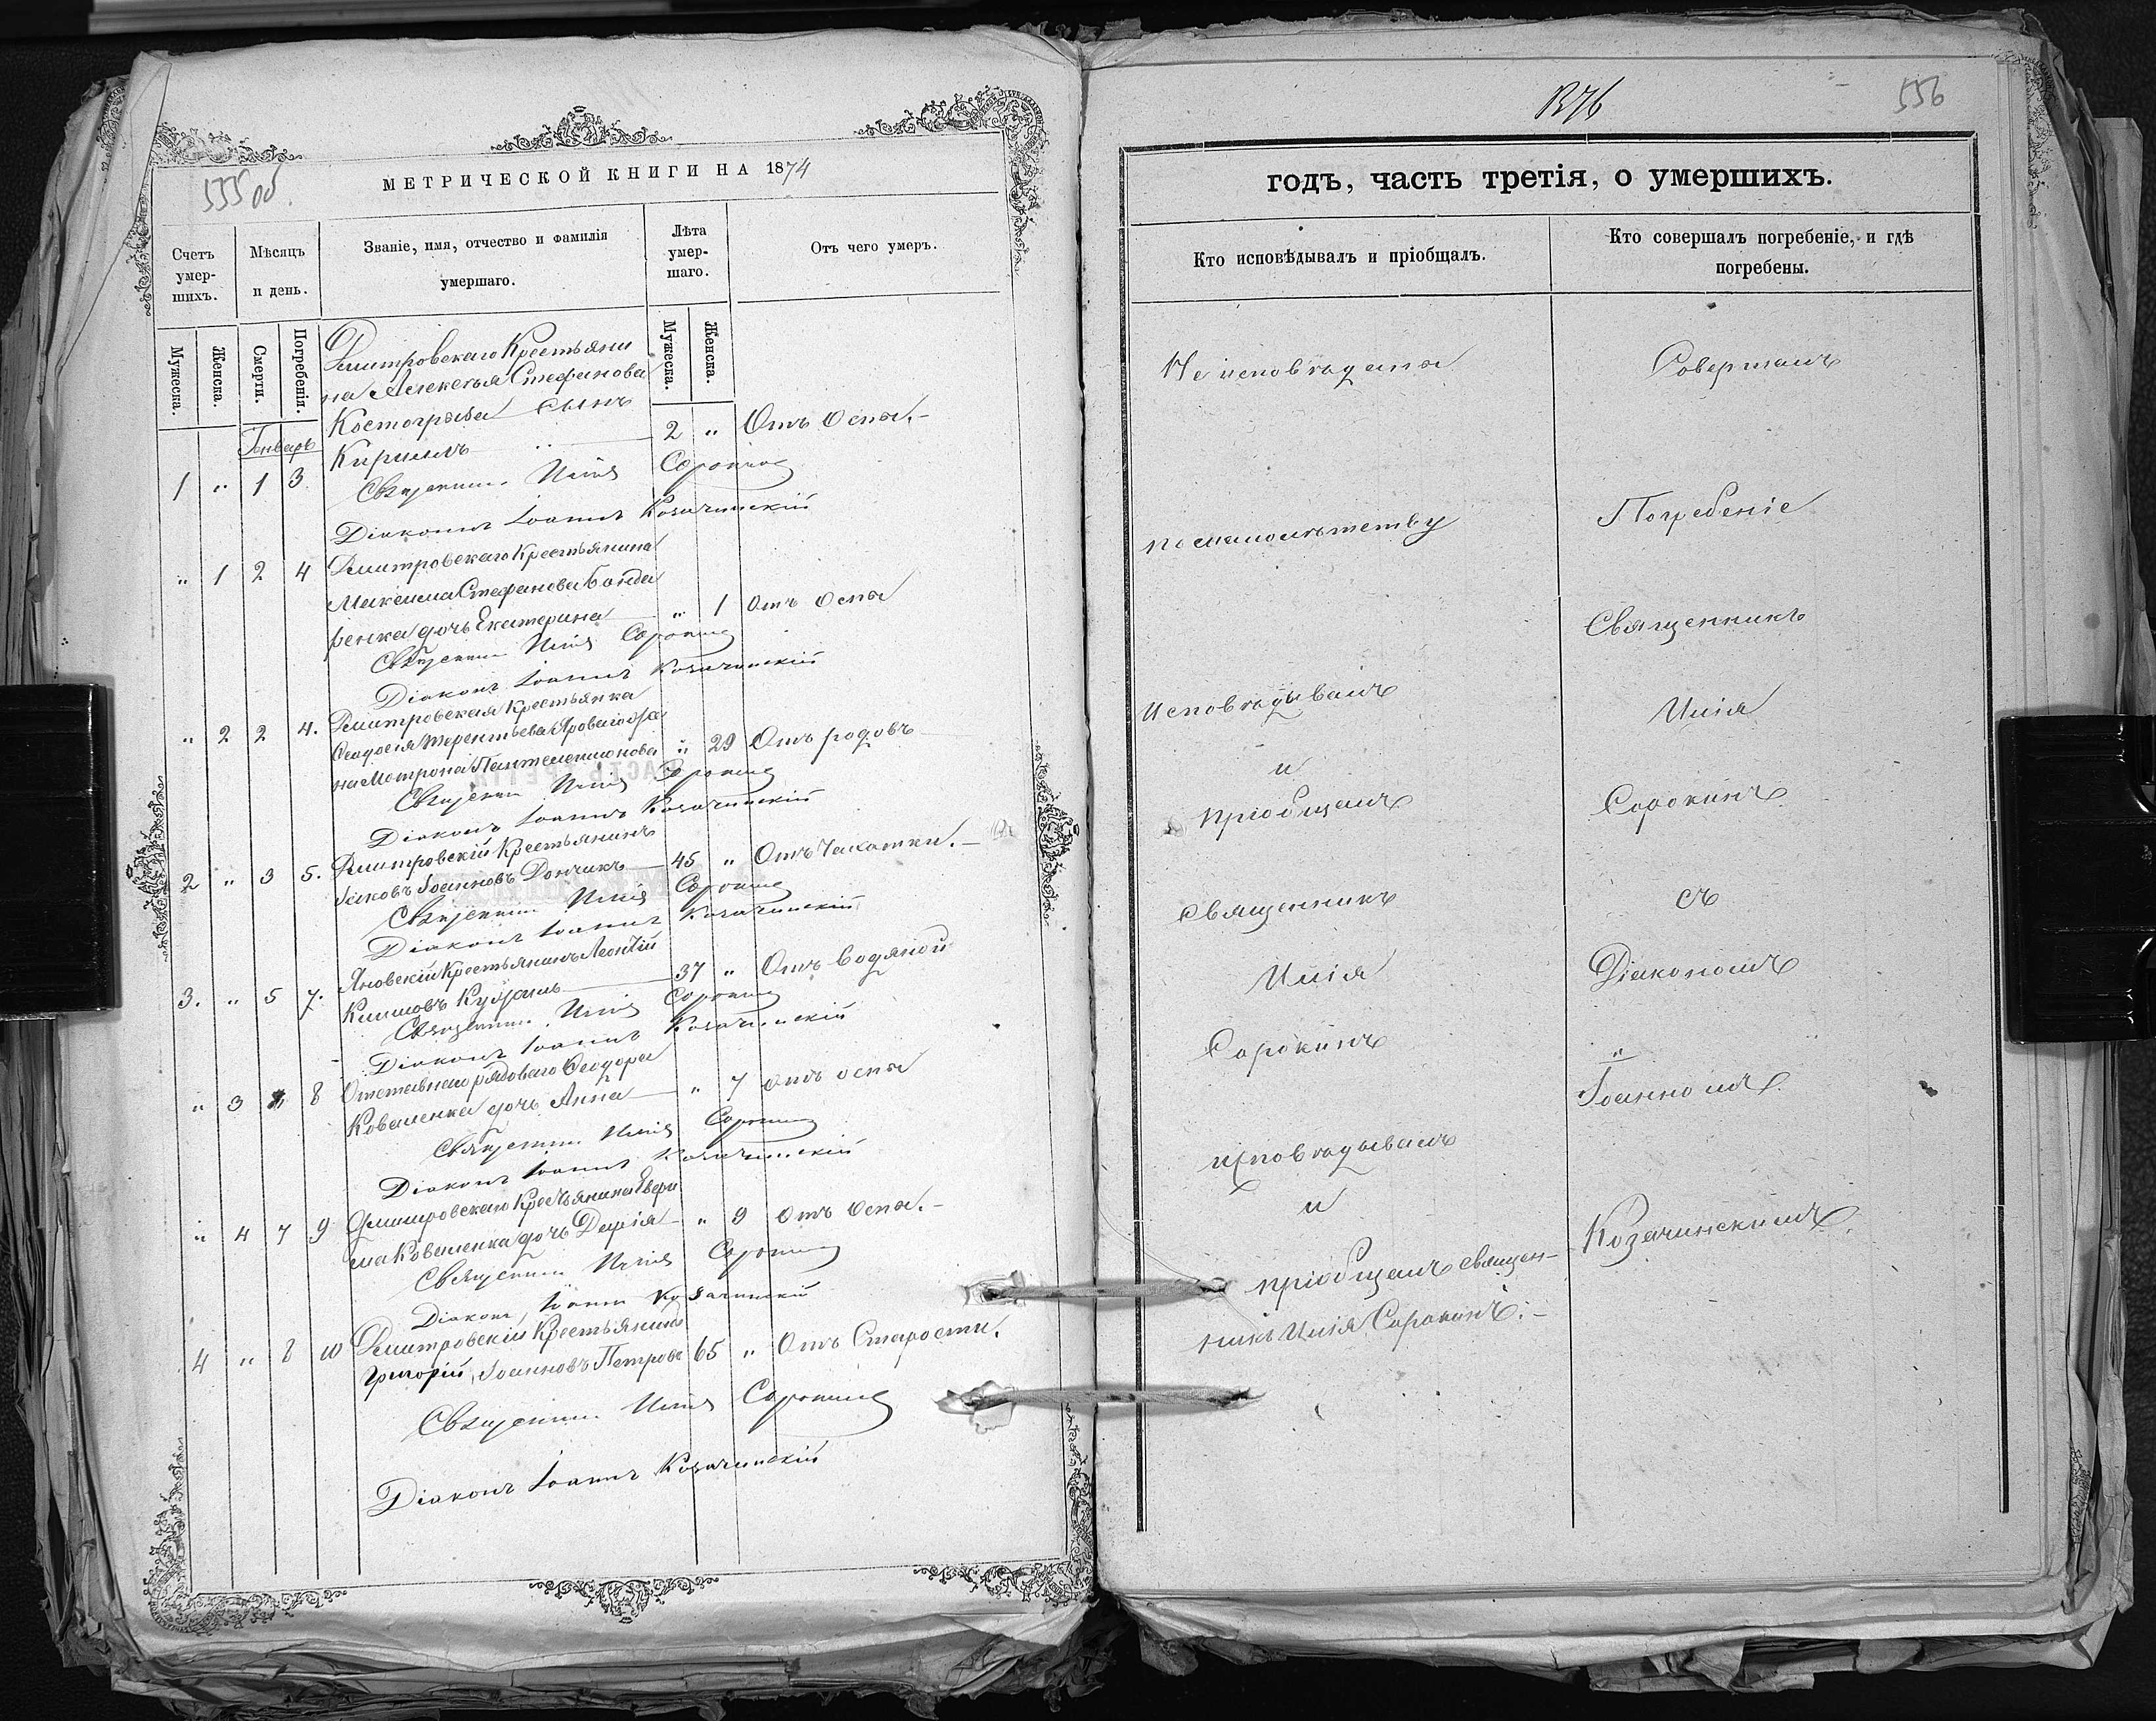 555 об.
МЕТРИЧЕСКОЙ КНИГИ НА 1874
Счетъ умер-шихъ.
Мѣсяцъ и день.
Званіе, имя, отчество и фамилія умершаго.
Лѣта умер-шаго.
Отъ чего умеръ.
Мужеска.
Женска.
Смерти.
Погребенія.
Мужеска.
Женска.
Январь
Дмитровскаго Крестьяни
на Алексѣя Стефанова
Костогрыза сынъ
1 " 1 3 Кириллъ 2 " Отъ Оспы.-
Священникъ Илія Сорокинъ
Діаконъ Іоаннъ Козачинскій
" 1 2 4 Дмитровскаго Крестьянина
Максима Стефанова Бонда
ренка дочь Екатерина " 1 Отъ Оспы
Священникъ Илія Сорокинъ
Діаконъ Іоаннъ Козачинскій
" 2 2 4. Дмитровская Крестьянка
Ѳеодосія Терентьева Яроваго же
на Матрона Пантелеимонова " 29 Отъ родовъ
Священникъ Илія Сорокинъ
Діаконъ Іоаннъ Козачинскій
2 " 3 5. Дмитровскій Крестьянинъ
Іаковъ Іоанновъ Дончикъ 45 " Отъ Чахотки.-
Священникъ Илія Сорокинъ
Діаконъ Іоаннъ Козачинскій
3. " 5 7. Яновскій Крестьянинъ Леонтій
Климовъ 37 " Отъ Водяной
Священникъ Илія Сорокинъ
Діаконъ Іоаннъ Козачинскій
" 3 8 Отставнаго рядоваго Ѳеодора
Коваленка дочь Анна " 7 отъ оспы
Священникъ Илія Сорокинъ
Діаконъ Іоаннъ Козачинскій
" 4 7 9 Дмитровскаго Крестьянина Евфи
ма Коваленка дочь Дарія " 9 отъ Оспы.-
Священникъ Илія Сорокинъ
Діаконъ Іоаннъ Козачинскій
4 " 8 10 Дмитровскій Крестьянинъ
Григорій Іоанновъ Петровъ 65 " Отъ Старости.
Священникъ Илія Сорокинъ
Діаконъ Іоаннъ Козачинскій
1376
556
годъ, часть третія, о умершихъ.
Кто исповѣдывалъ и пріобщалъ.
Кто совершалъ погребеніе, и гдѣ погребены.
Не исповѣданы
по малолѣтству
Исповѣдывалъ
и
пріобщалъ
священникъ
Илія
Сорокинъ
исповѣдывалъ
и
пріобщалъ священ-
никъ Илія Сорокинъ.-
Совершалъ
Погребеніе
Священникъ
Илія
Сорокинъ
съ
Діакономъ
Іоанномъ
Козачинскимъ.